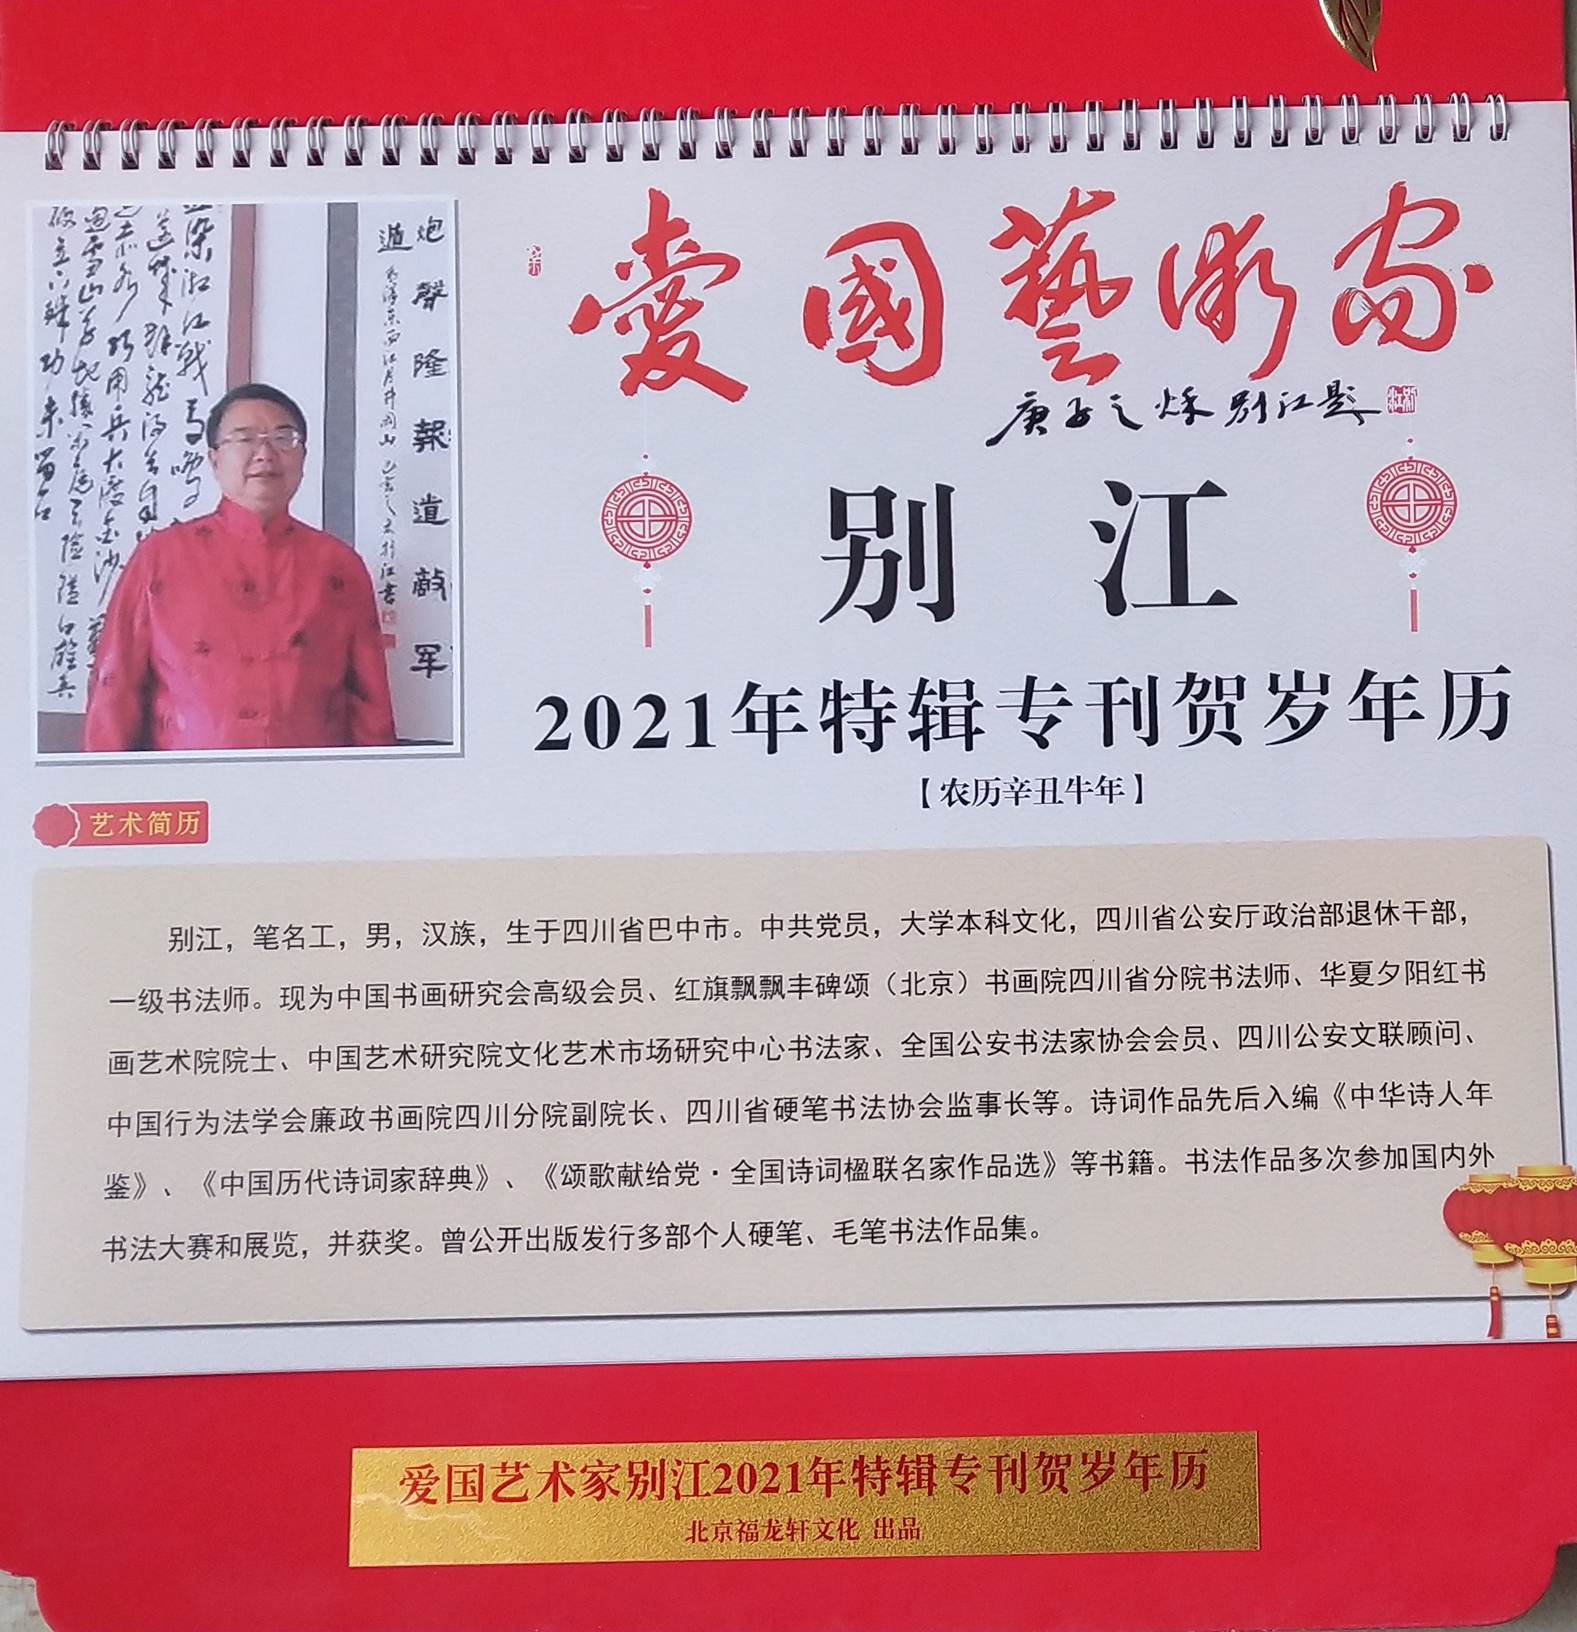 愛國藝術家
庚子之秌别江题
别江
2021年特辑专刊贺岁年历
【农历辛丑牛年】
炮聲隆報道敵軍
遁
艺术简历
别江，笔名工，男，汉族，生于四川省巴中市。中共党员，大学本科文化，四川省公安厅政治部退休干部，
一级书法师。现为中国书画研究会高级会员、红旗飘飘丰碑颂（北京）书画院四川省分院书法师、华夏夕阳红书
画艺术院院士、中国艺术研究院文化艺术市场研究中心书法家、全国公安书法家协会会员、四川公安文联顾问、
中国行为法学会廉政书画院四川分院副院长、四川省硬笔书法协会监事长等。诗词作品先后入编《中华诗人年
鉴》、《中国历代诗词家辞典》、《颂歌献给党·全国诗词楹联名家作品选》等书籍。书法作品多次参加国内外
书法大赛和展览，并获奖。曾公开出版发行多部个人硬笔、毛笔书法作品集。
爱国艺术家别江2021年特辑专刊贺岁年历
北京福龙轩文化 出品